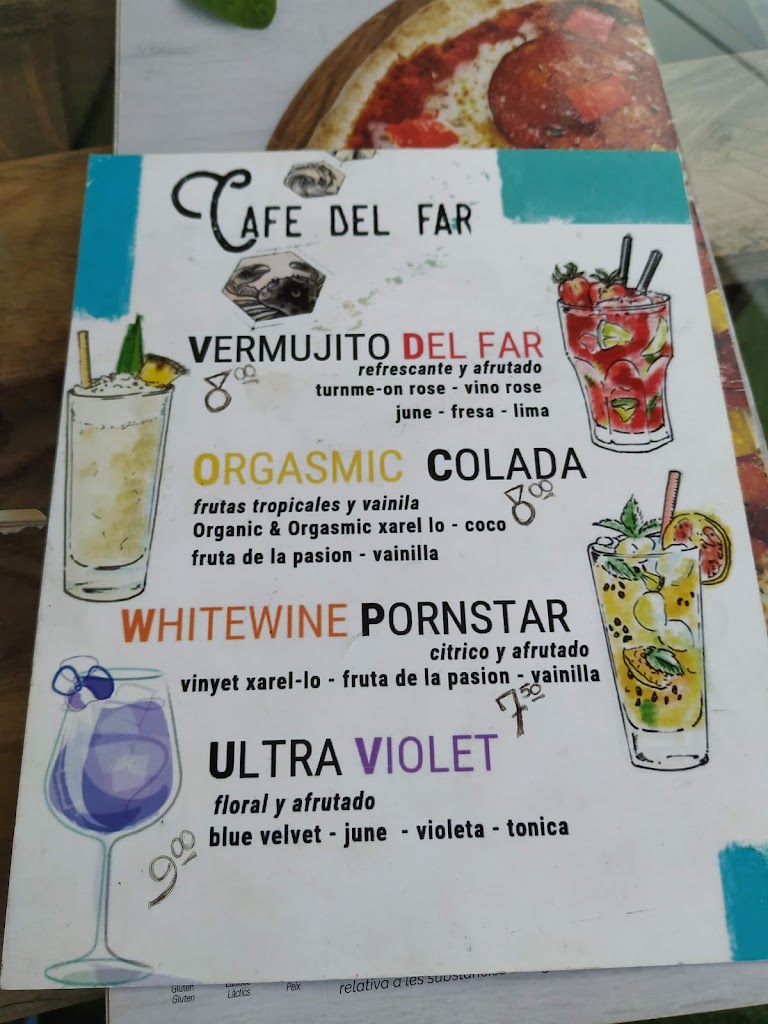 CAFE DEL FAR
VERMUJITO DEL FAR
refrescante y afrutado
8.00
turnme-on rose - vino rose
june - fresa - lima
ORGASMIC COLADA
frutas tropicales y vainila
8.00
Organic & Orgasmic xarel lo - coco
fruta de la pasion - vainilla
WHITEWINE PORNSTAR
citrico y afrutado
vinyet xarel-lo - fruta de la pasion - vainilla
7.50
ULTRA VIOLET
floral y afrutado
blue velvet - june - violeta - tonica
9.00
Gluten
Gluten
Làctics
Peix
relativa a les substàncies